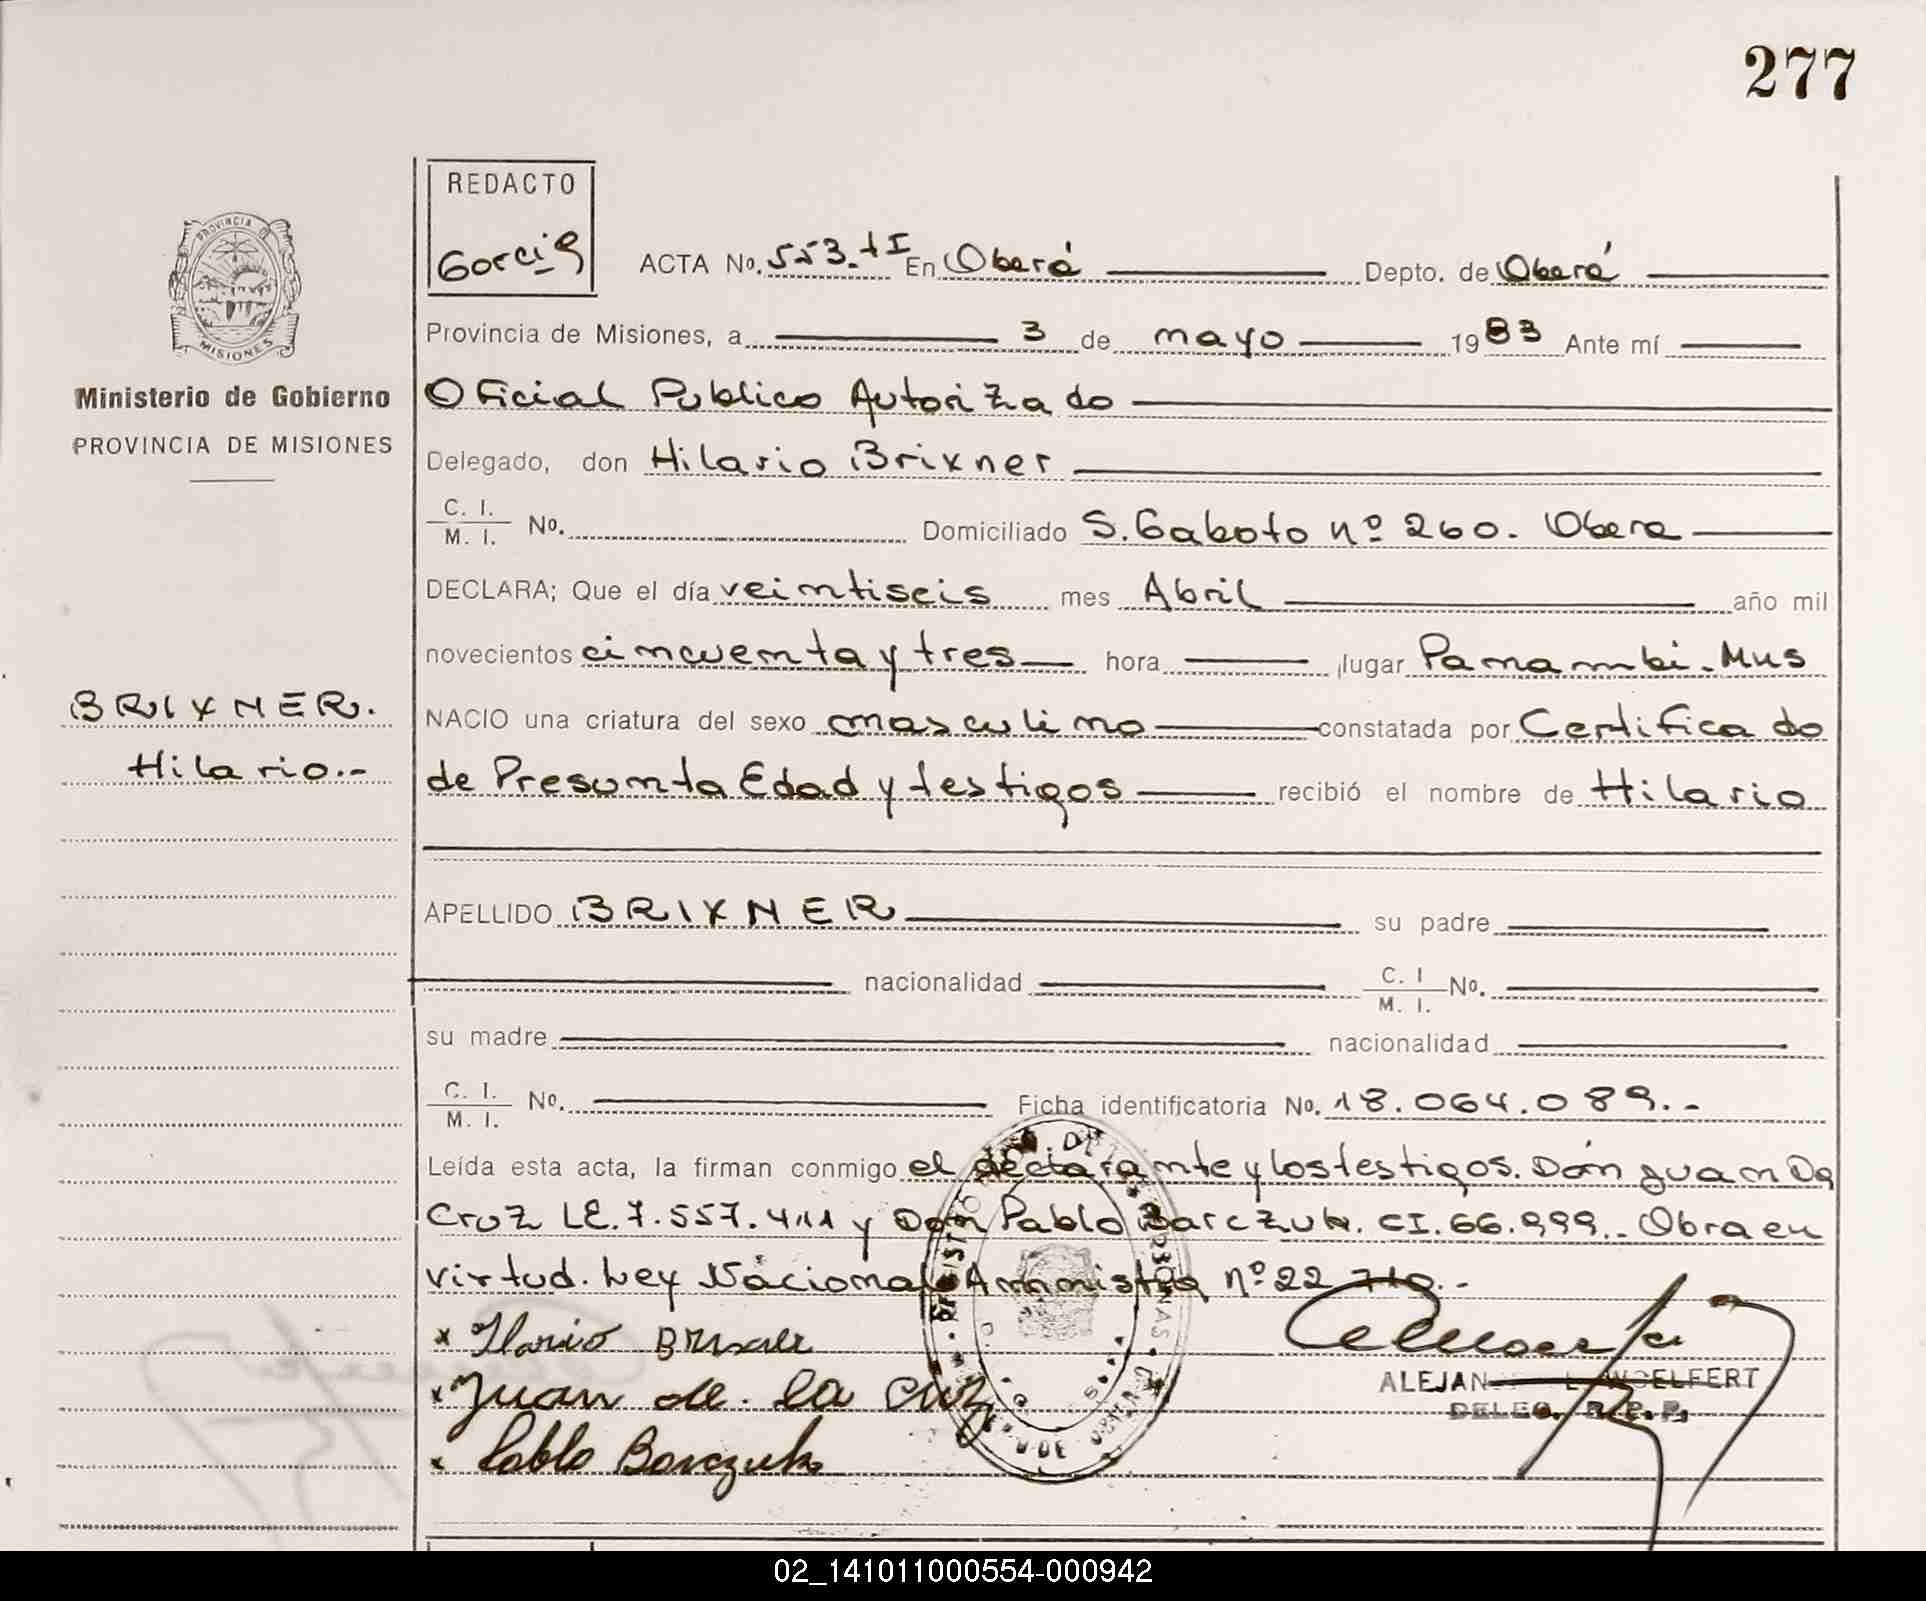 277
REDACTO
Garcia
ACTA No. 553-tI En Oberá Depto. de Oberá
PROVINCIA DE MISIONES
Provincia de Misiones, a 3 de mayo 1983 Ante mí
Ministerio de Gobierno
PROVINCIA DE MISIONES
Oficial Publico Autorizado
Delegado, don Hilario Brixner
C. I.
M. I. No. Domiciliado S. Gaboto nº 260. Obera
DECLARA; Que el día veintiseis mes Abril año mil
novecientos cincuenta y tres hora lugar Panambi-Mns
BRIXNER.
Hilario.-
NACIO una criatura del sexo masculino constatada por Certificado
de Presunta Edad y testigos recibió el nombre de Hilario
APELLIDO BRIXNER su padre
nacionalidad C. I
M. I. No.
su madre nacionalidad
C. I.
M. I. No. Ficha identificatoria No. 18.064.089.-
Leída esta acta, la firman conmigo el declarante y los testigos. Don Juan Da
Cruz LE.7.557.411 y Don Pablo Barczuk. CI.66.999.- Obra en
virtud. Ley Nacional Amnistia nº 22 710.-
x Ilario Brixner
x Juan de. la Cruz
x Pablo Barczuk
ALEJAN L. WOELFERT
DELEG. R. P. P.
02_141011000554-000942